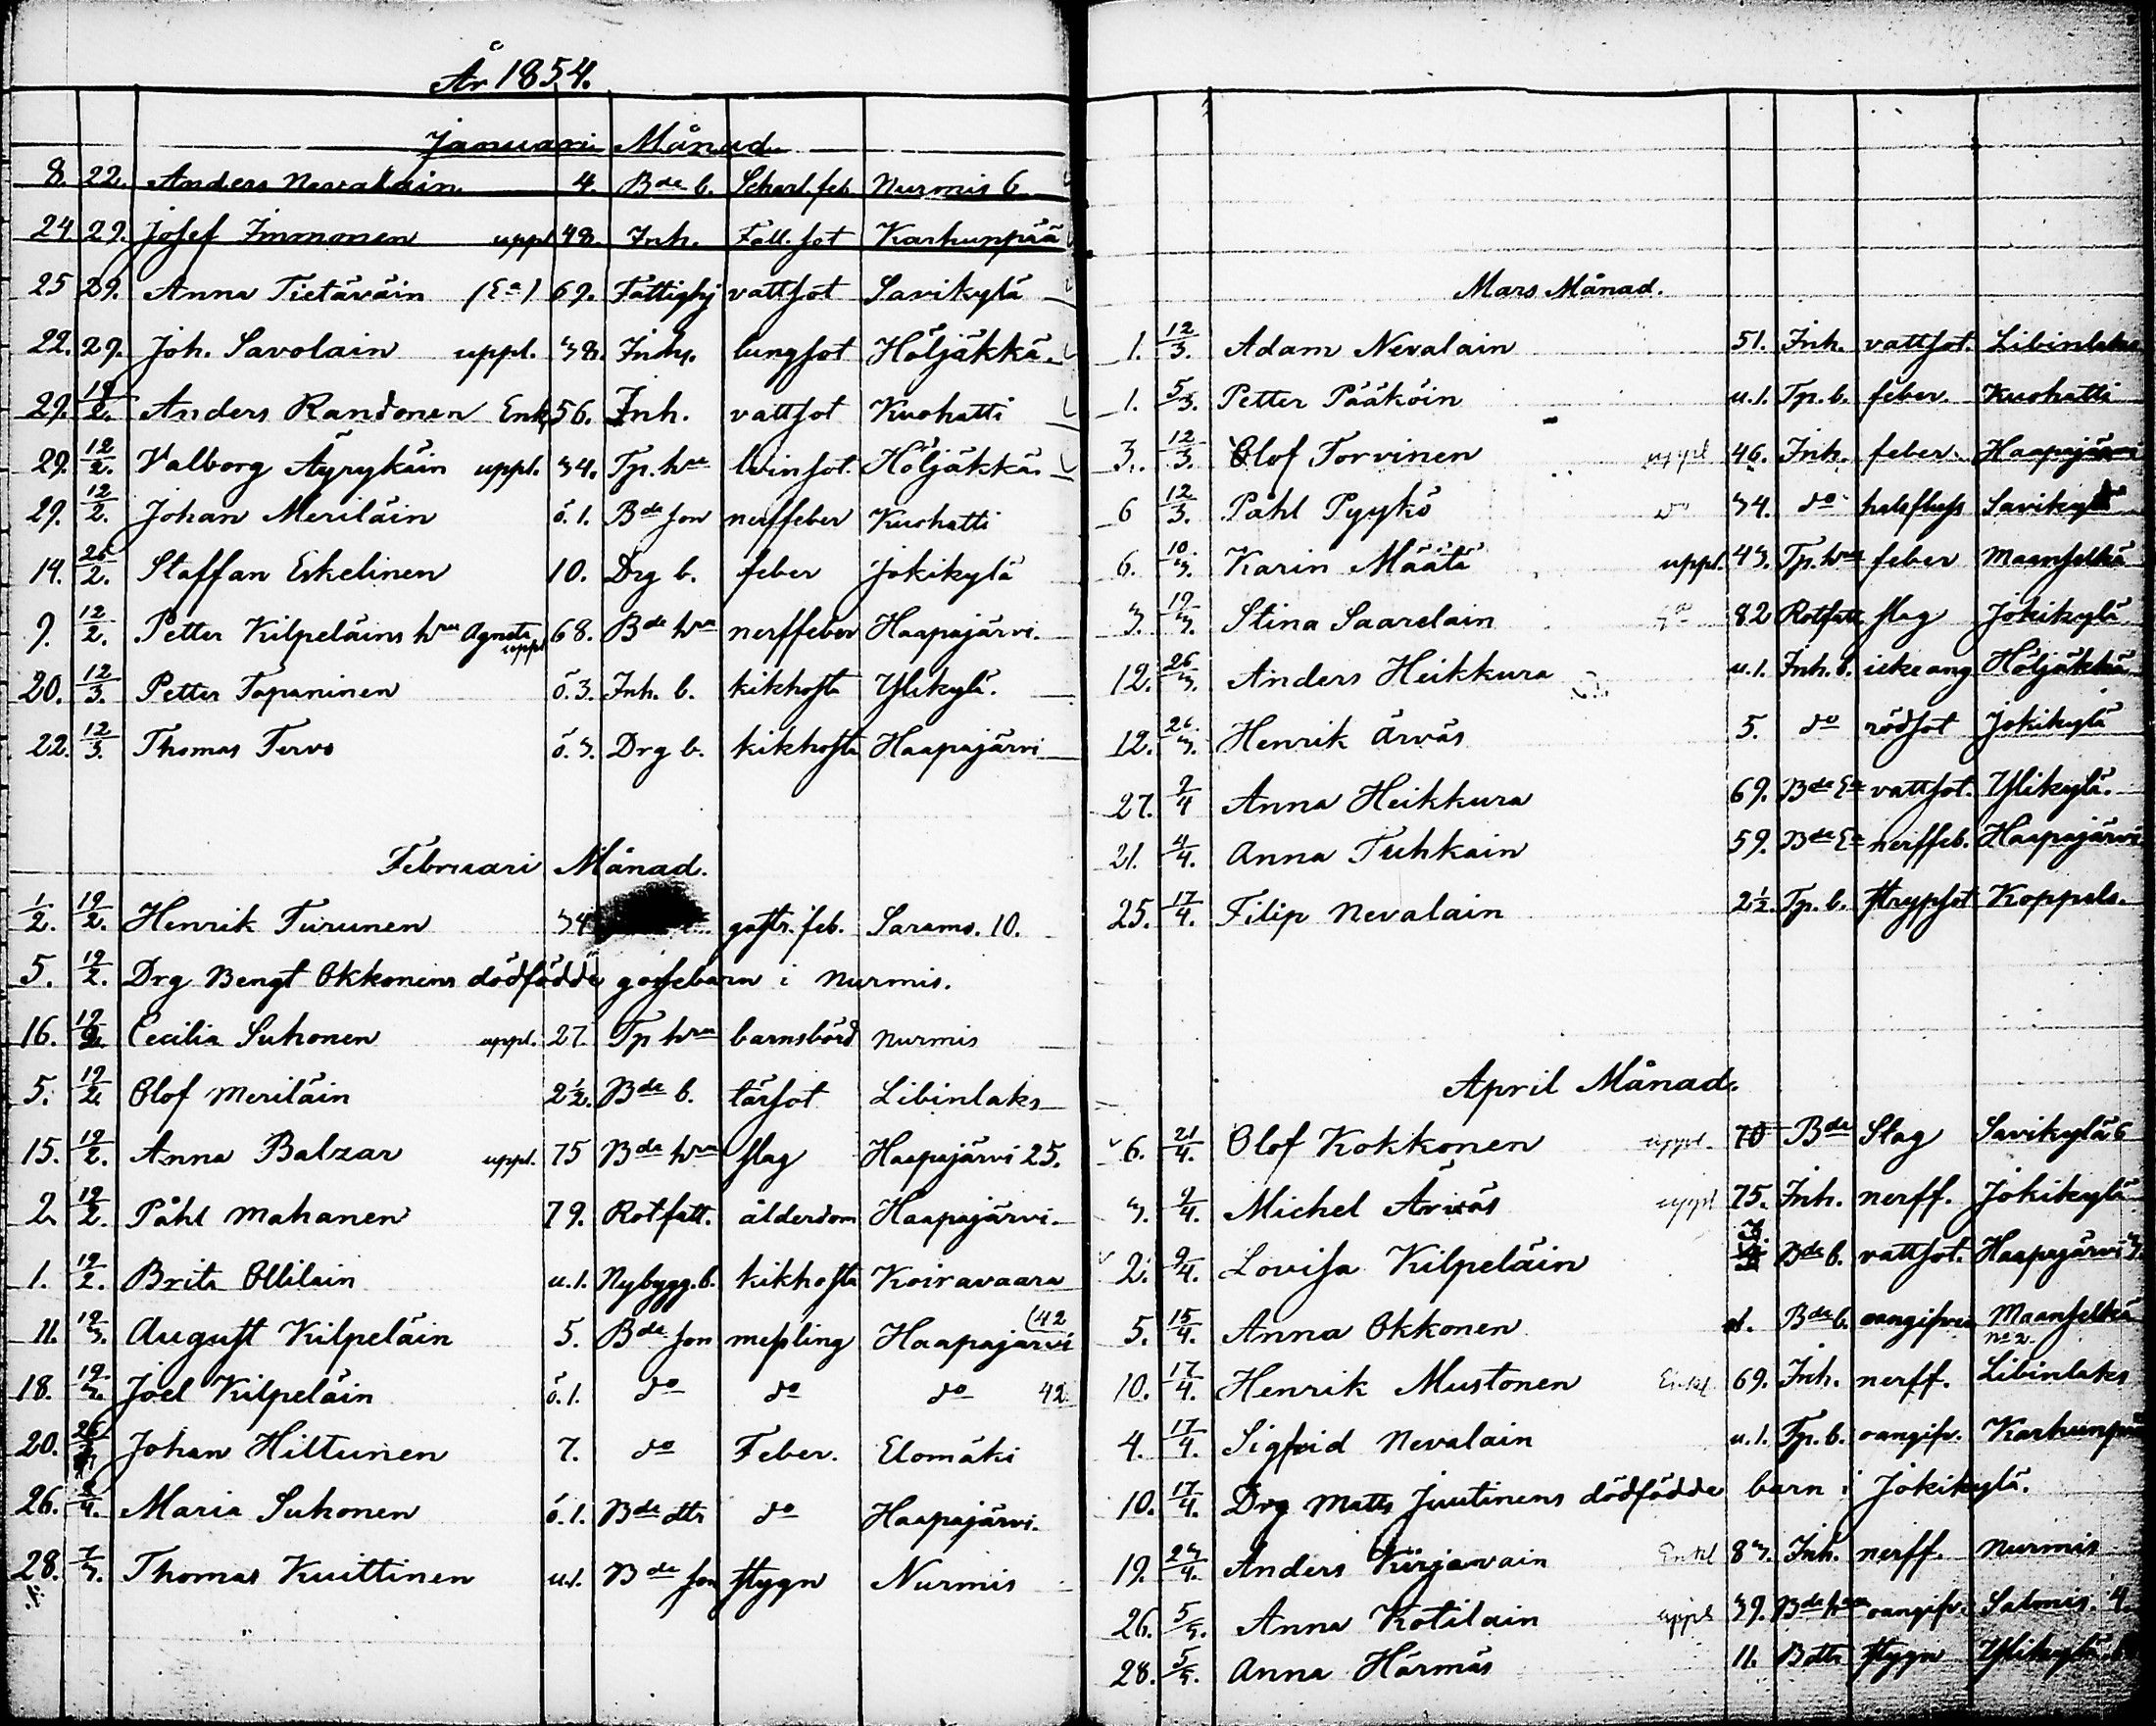 År 1854.
Januari Månad
8. 22. Anders Nevalain 4. Bde b. Scharl. feb. Nurmis 6
24 29. Josef Immonen uppl 48. Inh. Fall. sot Karhunpää
25 29. Anna Tietäväin (Ea) 69. Fattighj vattsot Savikylä
22. 29. Joh. Savolain uppl. 38. Inhs. lungsot Höljäkkä
29. 19/2. Anders Randonen Enkl 56. Inh. vattsot Kuohatti
29. 12/2. Valborg Äyrykäin uppl. 34. Tp. hru lvinsot. Höljäkkä
29. 12/2. Johan Meriläin ö. 1. Bde son nerffeber Kuohatti
14. 26/2. Staffan Eskelinen 10. Drg b. feber Jokikylä
9. 12/2. Petter Kilpeläins hru Agneta uppl 68. Bde hru nerffeber Haapajärvi.
20. 12/3. Petter Tapaninen ö. 3. Inh. b. kikhosta Ylikylä.
22. 12/3. Thomas Tervo ö. 3. Drg b. kikhosta Haapajärvi
Februari Månad.
1/2. 19/2. Henrik Turunen 34 gastr. feb. Saramo. 10.
5. 19/2. Drg Bengt Okkonens dödfödde gossebarn i Nurmis.
16. 19/2. Cecilia Suhonen uppl. 27. Tp hru barnsbörd Nurmis
5. 19/2. Olof Meriläin 2½. Bde b. tärsot Libinlaks
15. 19/2. Anna Balzar uppl. 75 Bde hru slag Haapajärvi 25.
2. 19/2. Påhl Mahanen 79. Rotfatt. ålderdom Haapajärvi.
1. 19/2. Brita Ollilain u. 1. Nybygg. b. kikhosta Koiravaara
11. 19/3. August Kilpeläin 5. Bde son messling Haapajärvi (42
18. 19/3. Joel Kilpeläin ö. 1. do do do 42
20. 26/3 Johan Hiltunen 7. do Feber. Elomäki
26. 2/4. Maria Suhonen ö. 1. Bde dtr do Haapajärvi.
28. 7/3. Thomas Kuittinen u. 1. Bde son stygn Nurmis
Mars Månad.
1. 12/3. Adam Nevalain 51. Inh. vattsot. Libinlaks
1. 5/3. Petter Pääköin u. 1. Tp. b. feber. Kuohatti
3. 12/3. Olof Torvinen uppl 46. Inh. feber. Haapajärvi
6 12/3. Påhl Pyykö do 34. do halsfluss Savikylä
6. 10/3. Karin Määtä uppl. 43. Tp. hru feber Maanselkä
3. 19/3. Stina Saarelain Ea 82 Rotfatt slag Jokikylä
12. 26/3. Anders Heikkura u. 1. Inh. b. icke ang Höljäkkä
12. 26/3. Henrik Ärväs 5. do rödsot Jokikylä
27. 9/4 Anna Heikkura 69. Bde Ea vattsot. Ylikylä.
21. 4/4. Anna Tuhkain 59. Bde Ea nerffeb. Haapajärvi
25. 17/4. Filip Nevalain 2½. Tp. b. strypsot Koppels.
April Månad.
6. 21/4. Olof Kokkonen uppl. 70 Bde Slag Savikylä 6
3. 9/4. Michel Äriväs uppl 75. Inh. nerff. Jokikylä
2. 9/4. Lovisa Kilpeläin Bde b. vattsot. Haapajärvi
5. 15/4. Anna Okkonen Bde b. oangifven Maanselkä no 2.
10. 17/4. Henrik Mustonen Enkl 69. Inh. nerff. Libinlaks
4. 17/4. Sigfrid Nevalain u. 1. Tp. b. oangifv. Karhunpää
10. 17/4. Drg Matts Juutinens dödfödde barn i Jokikylä.
19. 23/4. Anders Kirjavain Enkl 83. Inh. nerff. Nurmis
26. 5/5. Anna Kotilain uppl 39. Bde hru oangifv. Salmis. 4.
28. 5/5. Anna Härmäs 11. B dtr stygn Ylikylä